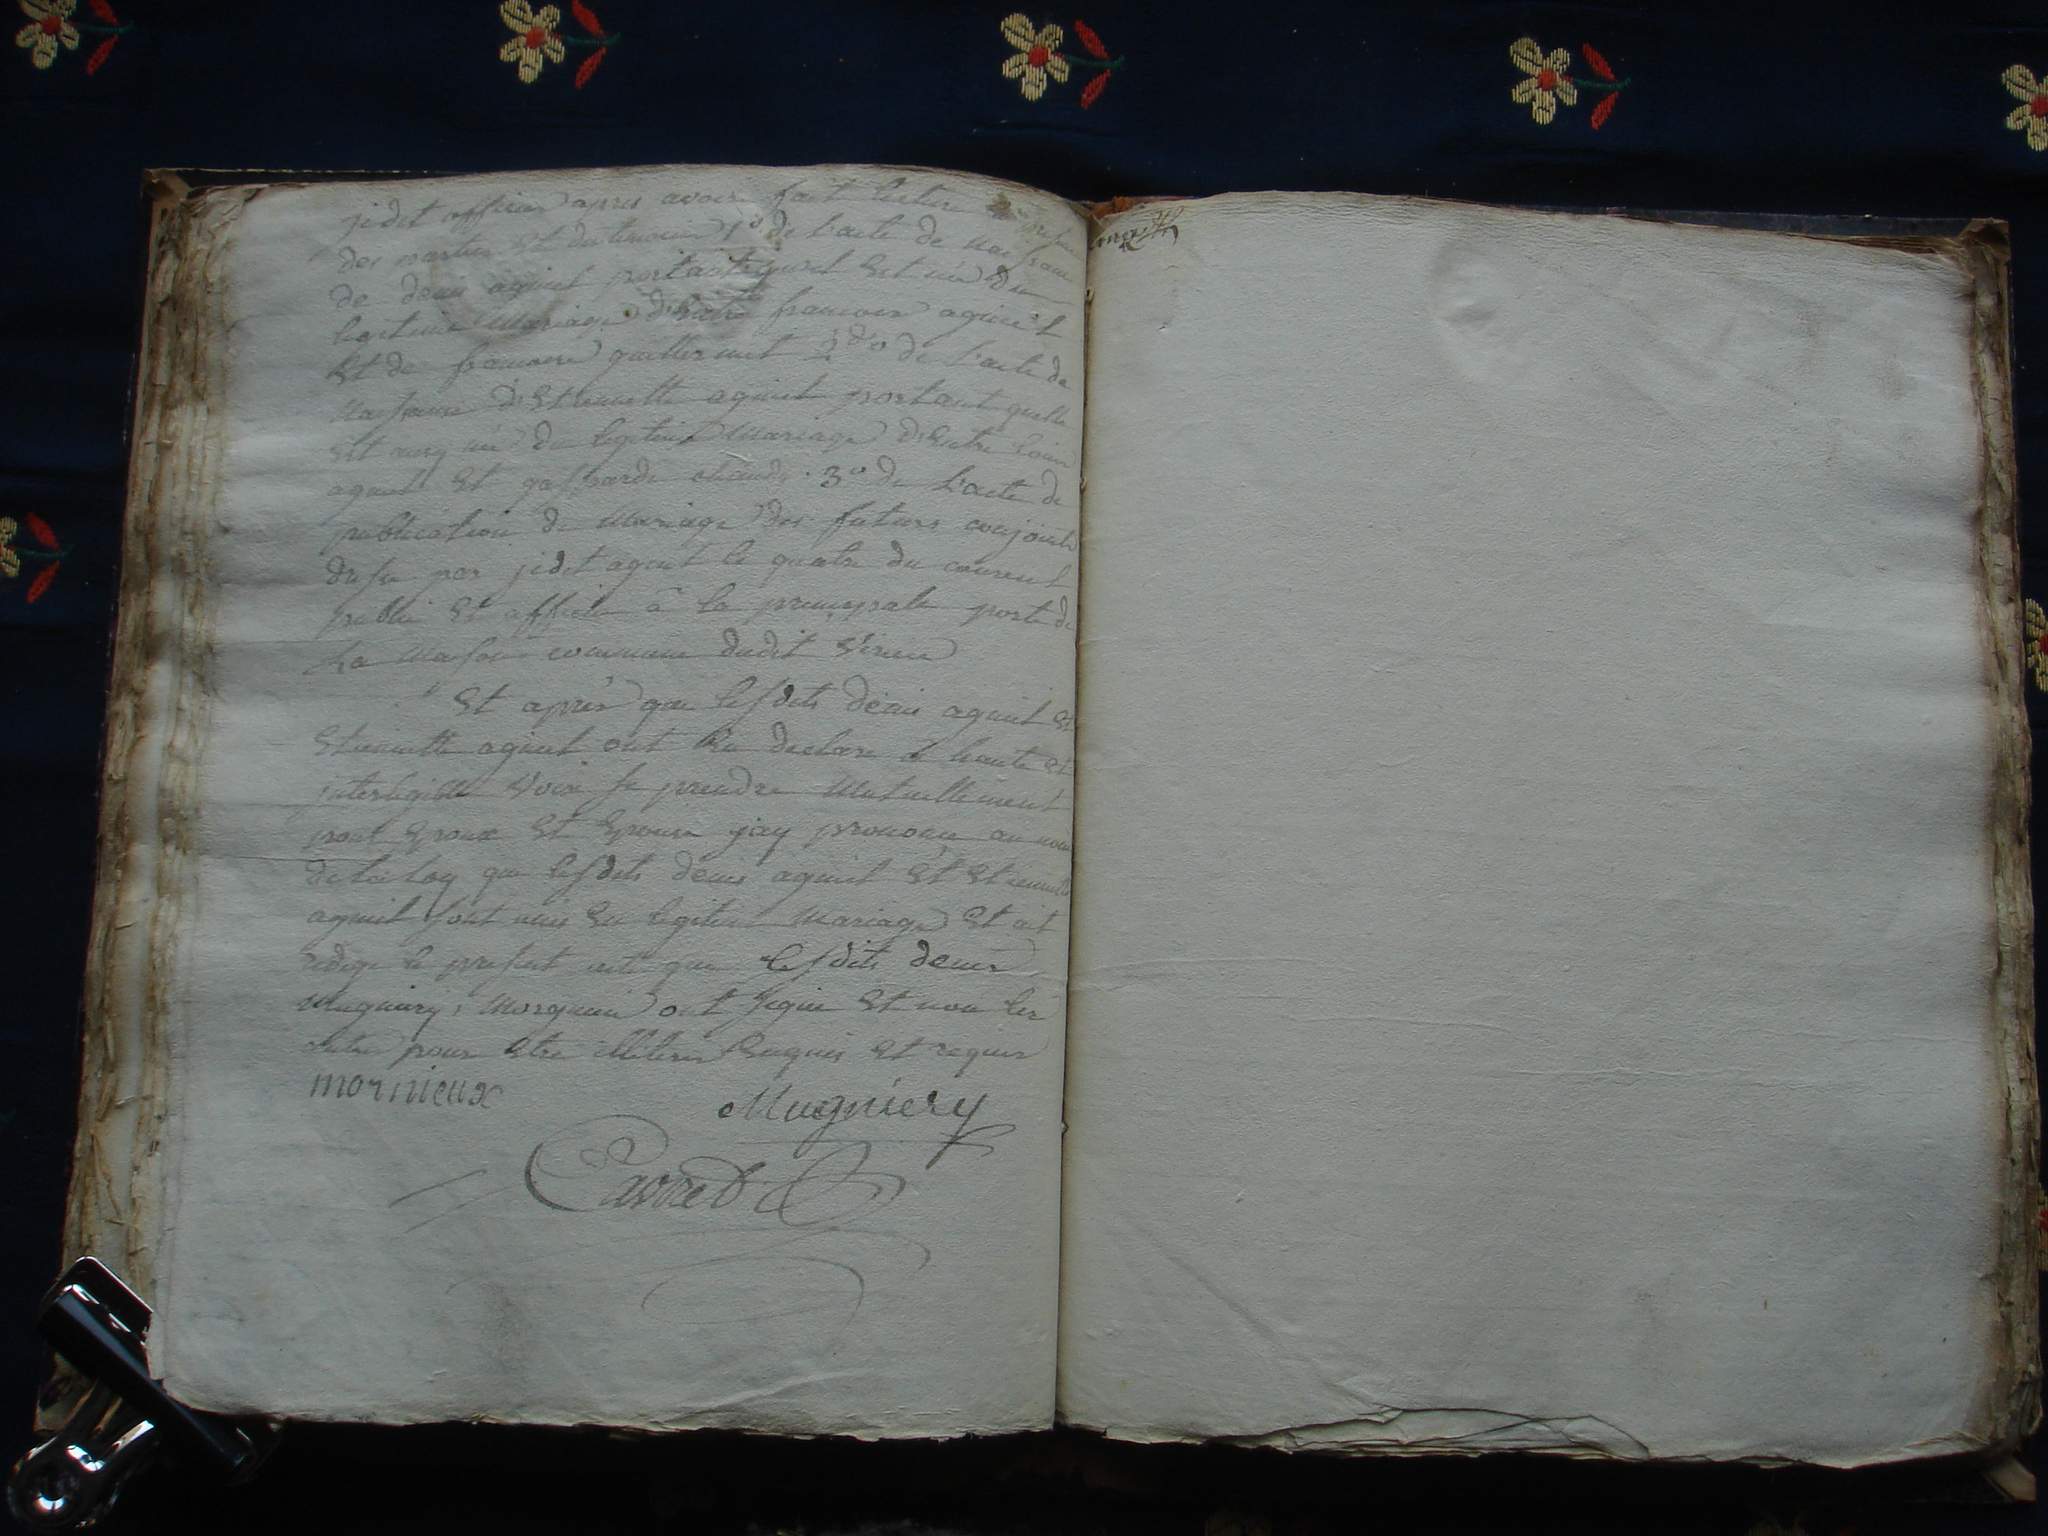 jidit officier apres avoir fait lecture en presence
des parties et du temoins 1º de l'acte de naissance
de denis aguiet portant quil est née du
legitime Mariage d'Entre francois aguiet
Et de francoise guillermet 2do de l'acte de
Naissance d'Etiennette aguiet portant quelle
Est aussy née du legitime Mariage d'Entre Louis
aguiet Et gasparde 3º de L'acte de
publication de Mariage des futurs conjoints
dressé par jidit agent le quatre du courent
publié Et affiché à la principale porte de
La Maison commune dudit Seirieu
Et après que lesdits denis aguiet Et
Etiennette aguiet ont declaré à haute Et
interligible Voix se prendre Mutuellement
pour Epoux Et Epouse jay prononcé au nom
de la loy que lesdits denis aguiet Et Etiennette
aguiet sont unis En legitime Mariage Et ait
redigé le present acte que lesdits denis
Mugniery, ont signé Et non les
autres pour Etre illiterés Enquis Et requis
mornieux Mugniéry